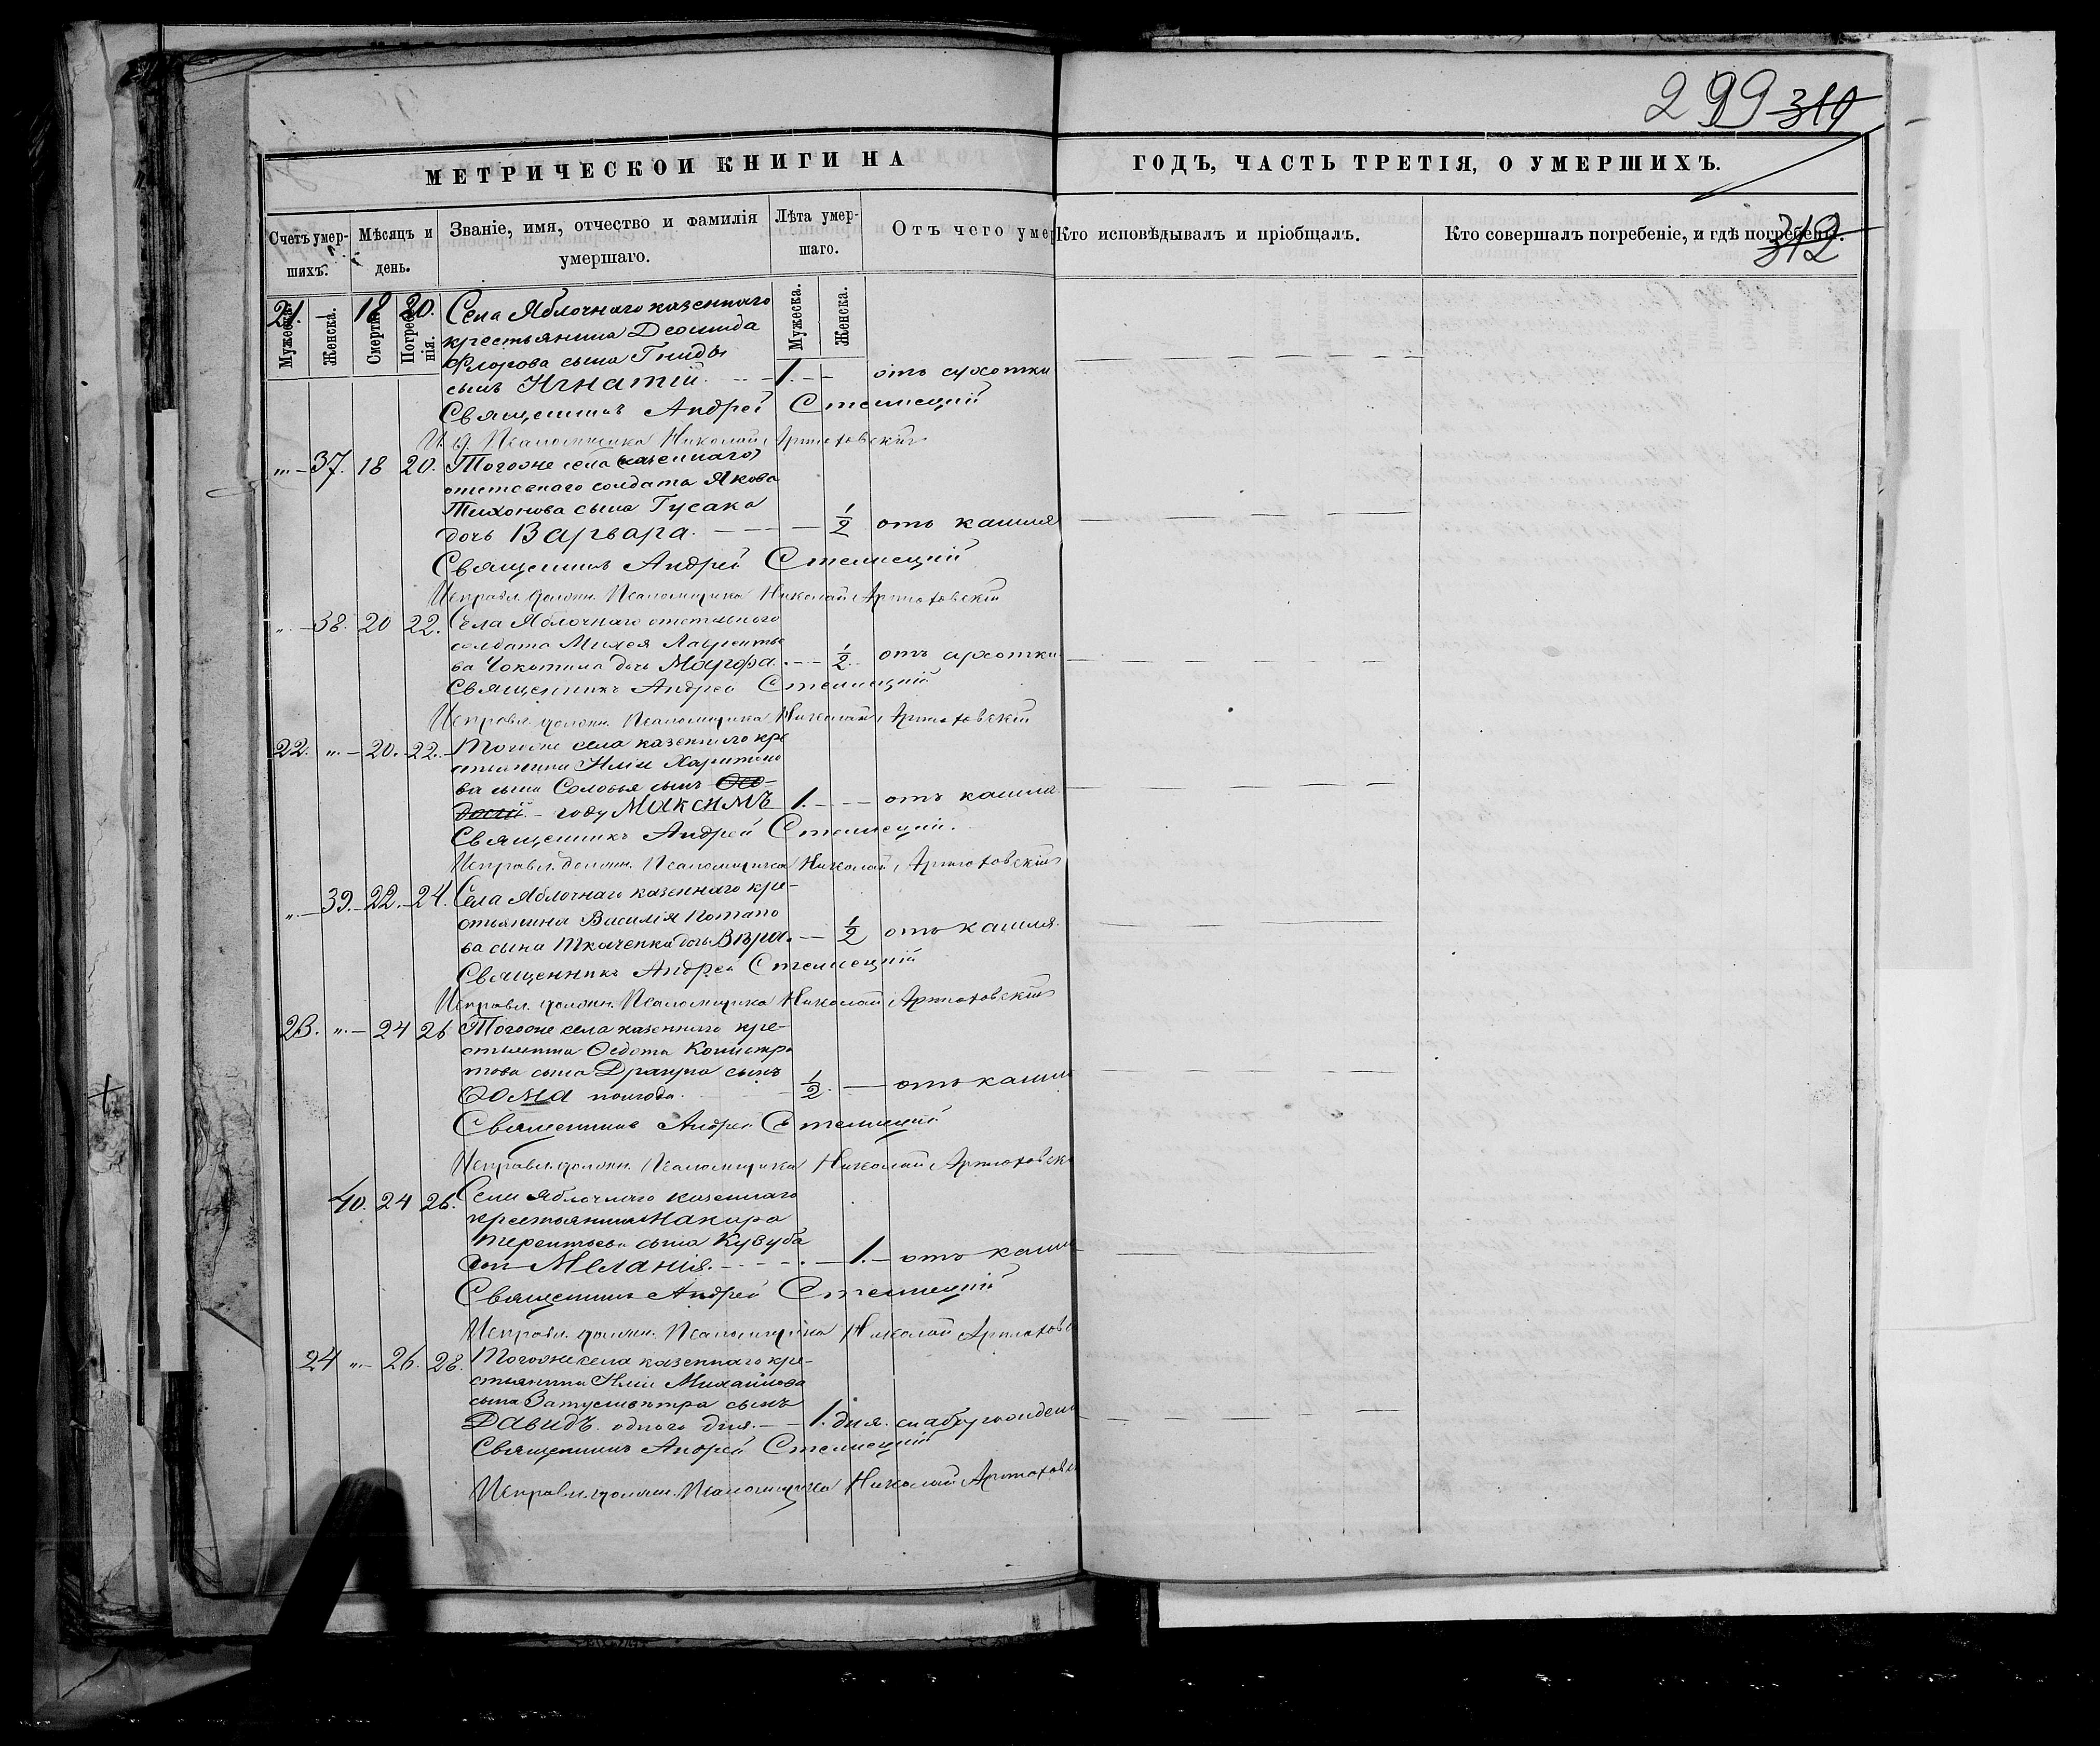 299 314
МЕТРИЧЕСКОЙ КНИГИ НА ГОДЪ, ЧАСТЬ ТРЕТІЯ, О УМЕРШИХЪ.
312
Счетъ умершихъ. Мѣсяцъ и день. Званіе, имя, отчество и фамилія умершаго. Лѣта умершаго. Отъ чего умер Кто исповѣдывалъ и пріобщалъ. Кто совершалъ погребеніе, и гдѣ погребены.
Мужеска. Женска. Смерти. Погребенія. Мужеска. Женска.
21. 18 20. Села Яблочнаго казеннаго
крестьянина Леонида
Флорова сына Гниды
сынъ Игнатій. 1. отъ сухотки
Священникъ Андрей Стеллецкій
И. д. Псаломщика Николай Артюховскій
37. 18 20. Тогоже села казеннаго
отставнаго солдата Якова
Тихонова сына Гусака
дочь Варвара. 1/2 отъ кашля
Священникъ Андрей Стеллецкій
Исправл. должн. Псаломщика Николай Артюховскій
38. 20 22. Села Яблочнаго отставного
солдата Михея Лаврентье
ва Чокотила дочь Марфа. 1/2 отъ сухотки
Священникъ Андрей Стеллецкій
Исправл. должн. Псаломщика Николай Артюховскій
22. 20. 22. Тогоже села казеннаго кре
стьянина Иліи Харитоно
ва сына Соловья сынъ Ѳео-
досій - году Максимъ 1. отъ кашля
Священникъ Андрей Стеллецкій.
Исправл. должн. Псаломщика Николай Артюховскій
39. 22. 24. Села Яблочнаго казеннаго кре-
стьянина Василія Потапо
ва сына Ткаченка дочь Вѣра. 1/2 отъ кашля.
Священникъ Андрей Стеллецкій
Исправл. должн. Псаломщика Николай Артюховскій
23. 24 26 Тогоже села казеннаго кре-
стьянина Ѳедота Калистра
това сына сынъ
Ѳома полгода. 1/2. отъ кашля
Священникъ Андрей Стеллецкій
Исправл. должн. Псаломщика Николай Артюховск
40. 24 26. Села Яблочнаго казеннаго
крестьянина Макара
Терентьева сына Кувуба
дочь Меланія. 1. отъ кашля
Священникъ Андрей Стеллецкій
Исправл. должн. Псаломщика Николай Артюховс
24 26. 28. Тогоже села казеннаго кре-
стьянина Иліи Михайлова
сына сынъ
Давидъ одного дня. 1. дня.
Священникъ Андрей Стеллецкій
Исправл. должн. Псаломщика Николай Артюховс